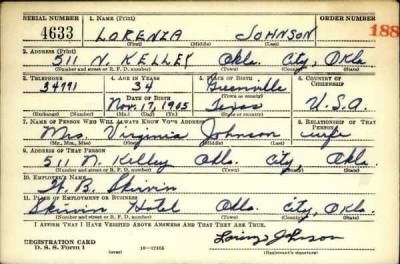 SERIAL NUMBER 1. NAME (Print) ORDER NUMBER
4633 LORENZA JOHNSON 188
(First) (Middle) (Last)
2. ADDRESS (Print)
511 N. KELLEY Okla. City, Okla
(Number and street or R. F. D. number) (Town) (County) (State)
3. TELEPHONE 4. AGE IN YEARS 5. PLACE OF BIRTH 6. COUNTRY OF CITIZENSHIP
34791 34 Greenville
DATE OF BIRTH (Town or county)
Nov. 17, 1905 Texas U.S.A.
(Exchange) (Number) (Mo.) (Day) (Yr.) (State or country)
7. NAME OF PERSON WHO WILL ALWAYS KNOW YOUR ADDRESS 8. RELATIONSHIP OF THAT PERSON
Mrs. Virginia Johnson wife
(Mr., Mrs., Miss) (First) (Middle) (Last)
9. ADDRESS OF THAT PERSON
511 N. Kelley Okla. City, Okla.
(Number and street or R. F. D. number) (Town) (County) (State)
10. EMPLOYER'S NAME
W. B. Skirvin
11. PLACE OF EMPLOYMENT OR BUSINESS
Skirvin Hotel Okla. City, Okla.
(Number and street or R. F. D. number) (Town) (County) (State)
I AFFIRM THAT I HAVE VERIFIED ABOVE ANSWERS AND THAT THEY ARE TRUE.
REGISTRATION CARD
D. S. S. Form 1 Johnson